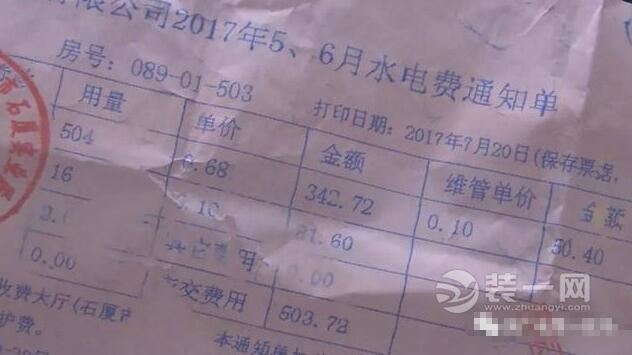 有限公司2017年5、6月水电费通知单
房号：089-01-503
打印日期：2017年7月20日(保存票
用量 单价 金额 维管单价 金额
504 0.68 342.72 0.10 50.40
16 .10 81.60
0.00 其它费用 0.00
交费用 503.72
收费大厅(石厦市
护费。
本通知单
石厦实业股
装一网
zhuangyi.com